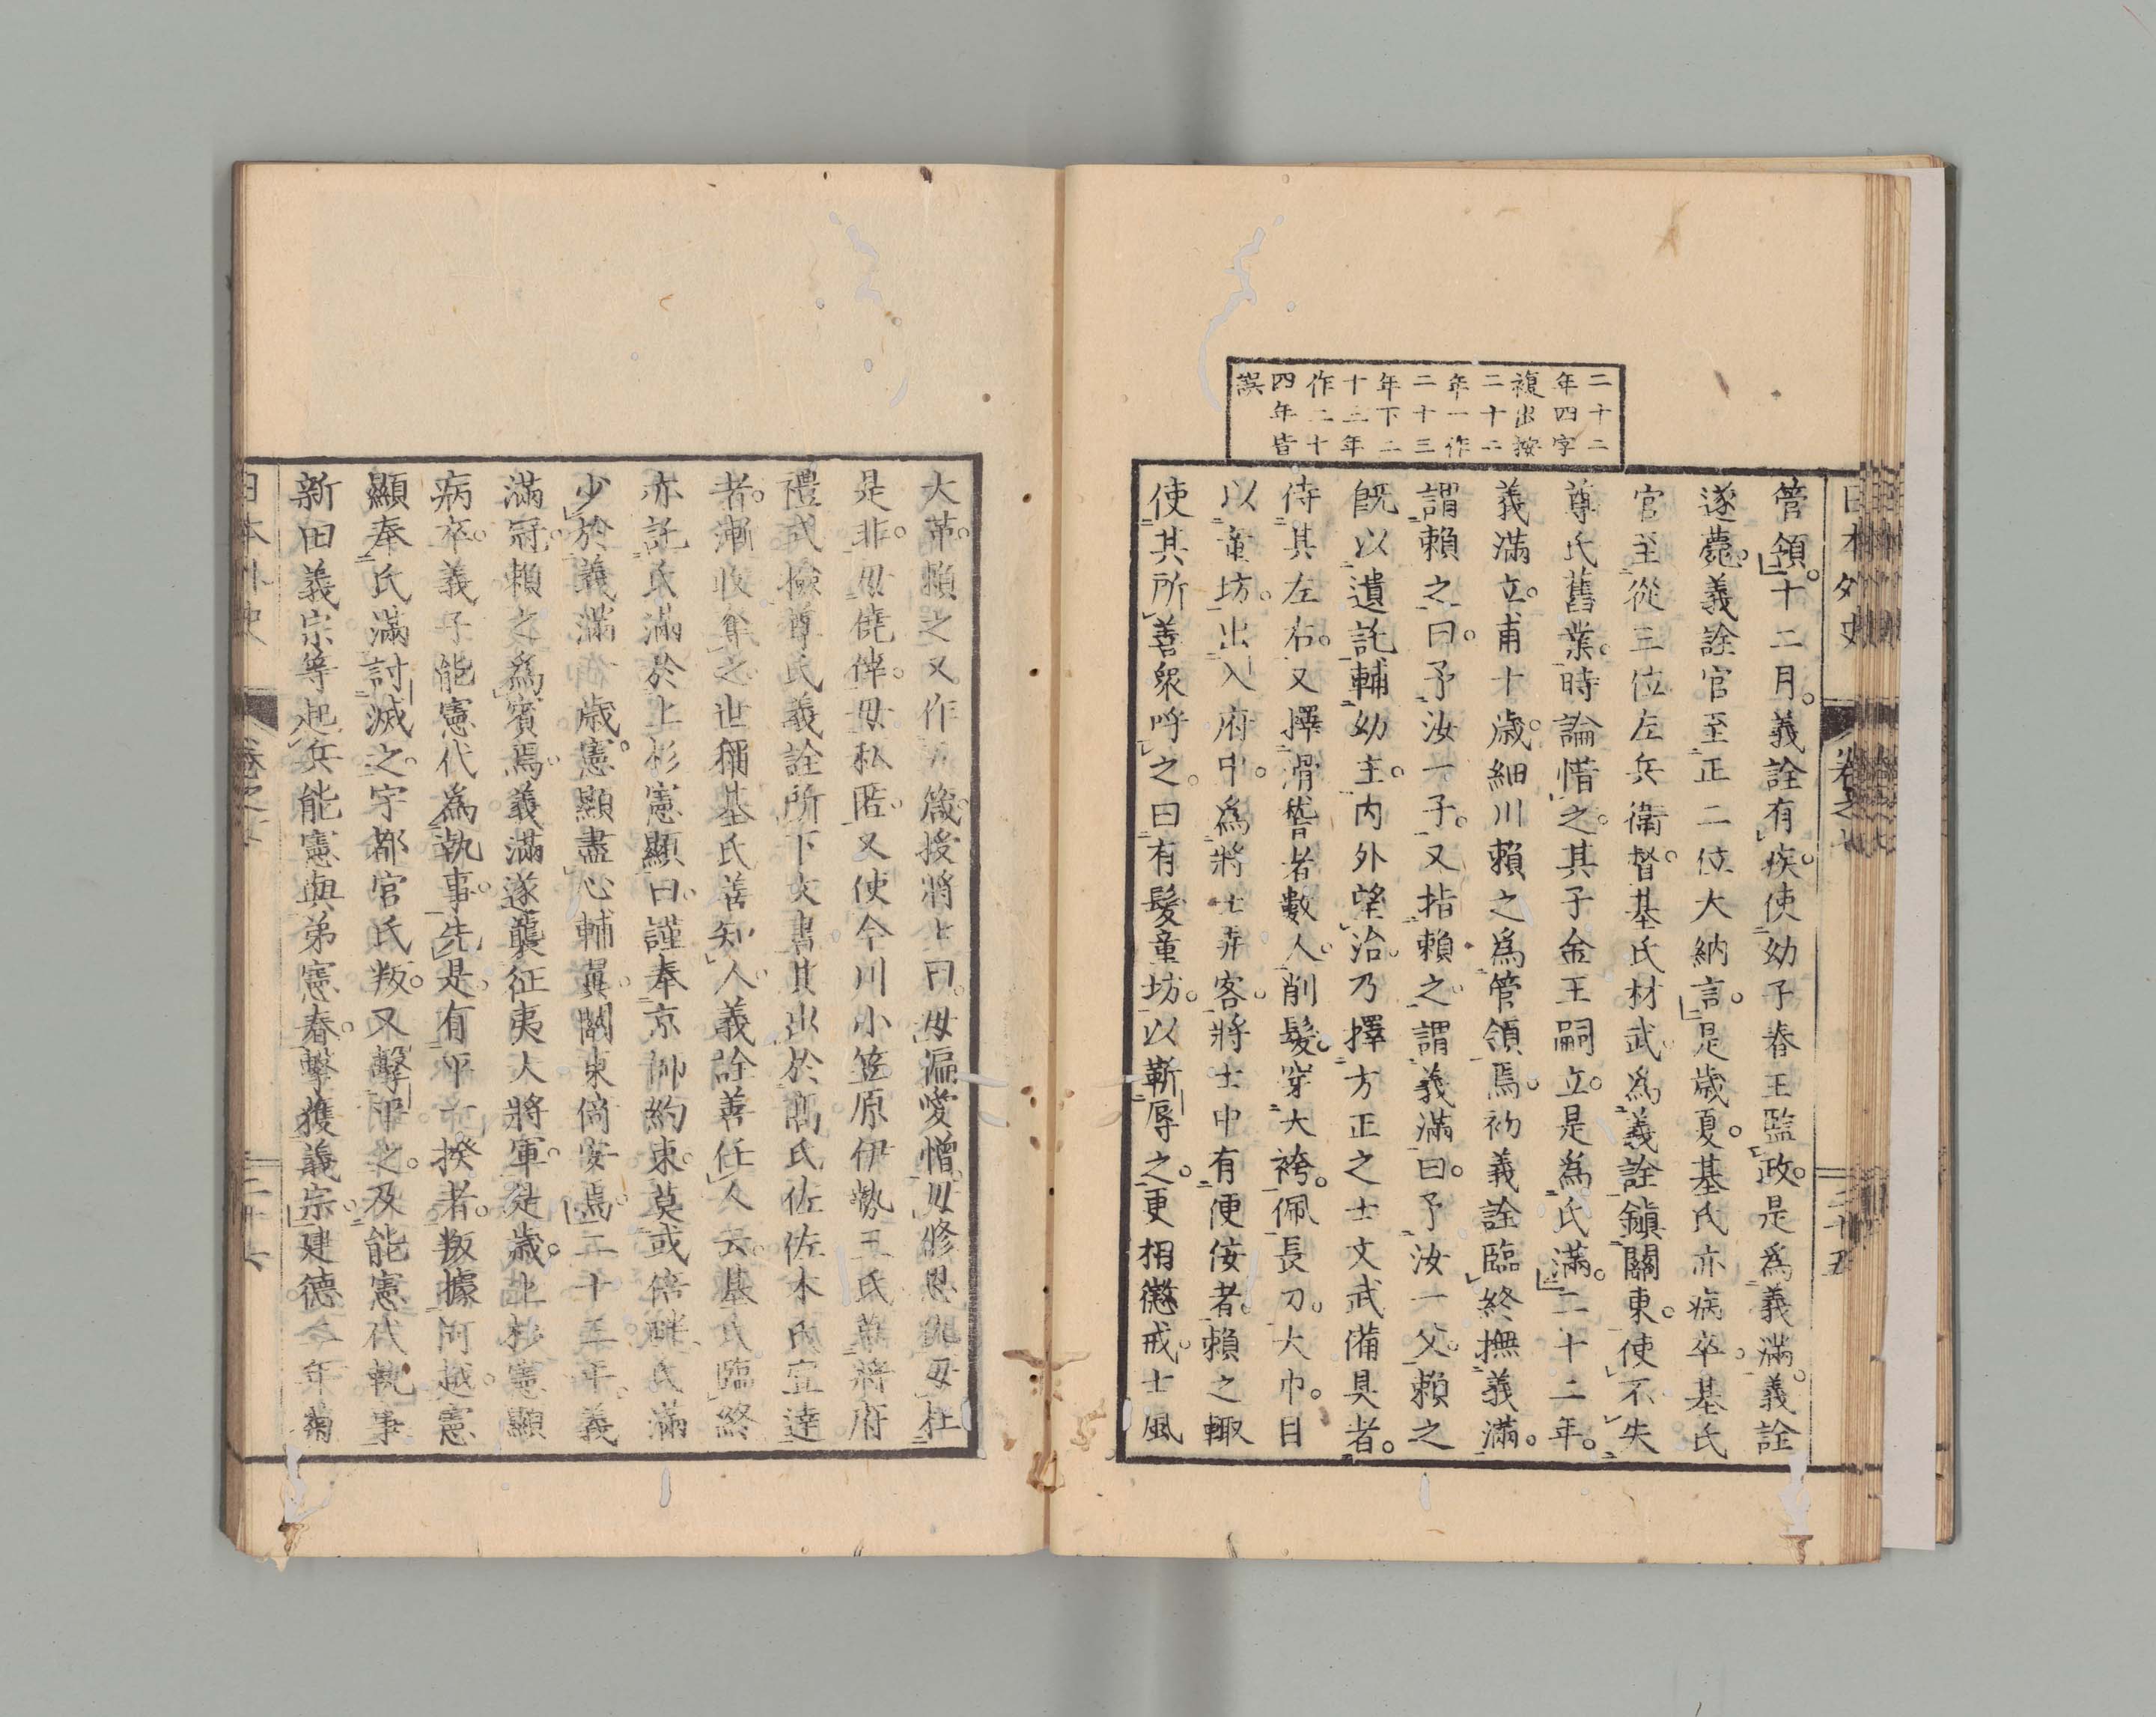 二十二
年四字
複出按
二十二
年一作
二十三
年下二
十三年
作二十
四年皆
誤
管領。十二月。義詮有疾。使幼子春王監政。是為義滿。義詮
遂薨。義詮官至正二位大納言。是歲夏。基氏亦病卒。基氏
官至從三位左兵衛督。基氏材武。為義詮鎮關東。使不失
尊氏舊業。時論惜之。其子金王嗣立。是為氏滿。二十二年。
義滿立。甫十歲。細川賴之為管領焉。初義詮臨終撫義滿。
謂賴之曰。予汝一子。又指賴之。謂義滿曰。予汝一父。賴之
既以遺託輔幼主。內外望洽。乃擇方正之士文武備具者。
侍其左右。又擇滑稽者數人。削髮。穿大袴。佩長刀。大巾。日
以童坊。出入府中。為將士弄客。將士中有便佞者。賴之輙
使其所善衆呼之。曰有髮童坊。以嶄辱之。更相懲戒。士風
日本外史 卷之七 二十五
大革。賴之又作 箴。授將士曰。毋偏愛憎。毋修恩 毋枉
是非。毋僥倖。毋私匿。又使今川小笠原伊勢三氏 將府
禮式。撿尊氏義詮所下文書。其出於高氏佐佐木氏 達
者。漸收奪之。世稱基氏善知人。義詮善任人云。基氏臨終
亦託氏滿於上杉憲顯曰。謹奉京帥約束。莫或 氏滿
少於義滿 歲。憲顯盡心輔翼。關東倚安焉。二十三年。義
滿冠。賴之為賓焉。義滿遂襲征夷大將軍。是歲。上杉憲顯
病卒。義子能憲代為執事。先是有平一揆者。叛據河越。憲
顯奉氏滿討滅之。宇都宮氏叛。又擊平之。及能憲代執事
新田義宗等起兵。能憲與弟憲春。擊獲義宗。建德 年菊
日本外史 卷之七 二十六